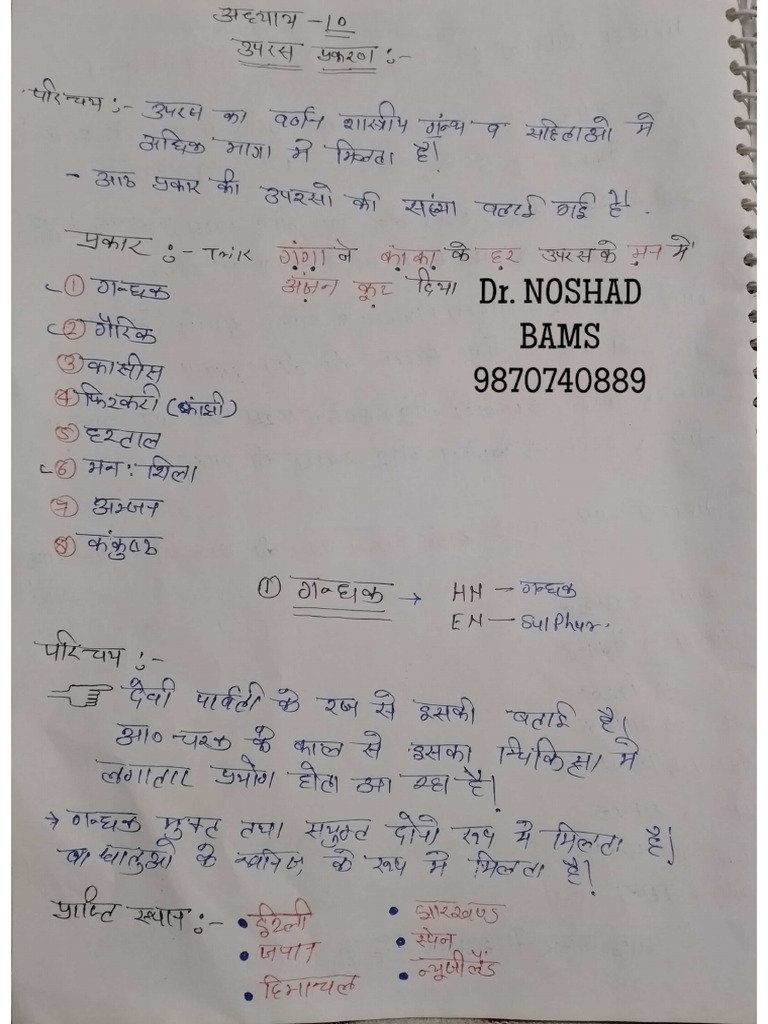 अध्याय - 10
उपरस प्रकरण :-
परिचय :- उपरस का वर्णन शास्त्रीय ग्रंन्थ व संहिताओ मे
अधिक मात्रा मे मिलता है।
- आठ प्रकार की उपरसो की संख्या बताई गई है।
प्रकार :- Trick गंगा ने काका के हर उपरस के मन में
① गन्धक अंजन कूट दिया
Dr. NOSHAD
② गैरिक
BAMS
③ कासीस
9870740889
④ फिटकरी (कांक्षी)
⑤ हरताल
⑥ मन: शिला
⑦ अन्जन
⑧ कंकुष्ठ
① गन्धक → HN - गन्धक
EN - Sulphur.
परिचय :-
देवी पार्वती के रज से इसकी बताई है।
आ० चरक के काल से इसका चिकित्सा मे
लगातार प्रयोग होता आ रहा है।
→ गन्धक मुक्त तथा संयुक्त दोनो रूप मे मिलता है।
व धातुओ के खनिज के रूप मे मिलता है।
प्राप्ति स्थान :- • ईटली • झारखण्ड
• जपान • स्पेन
• हिमाचल • न्यूजीलैंड